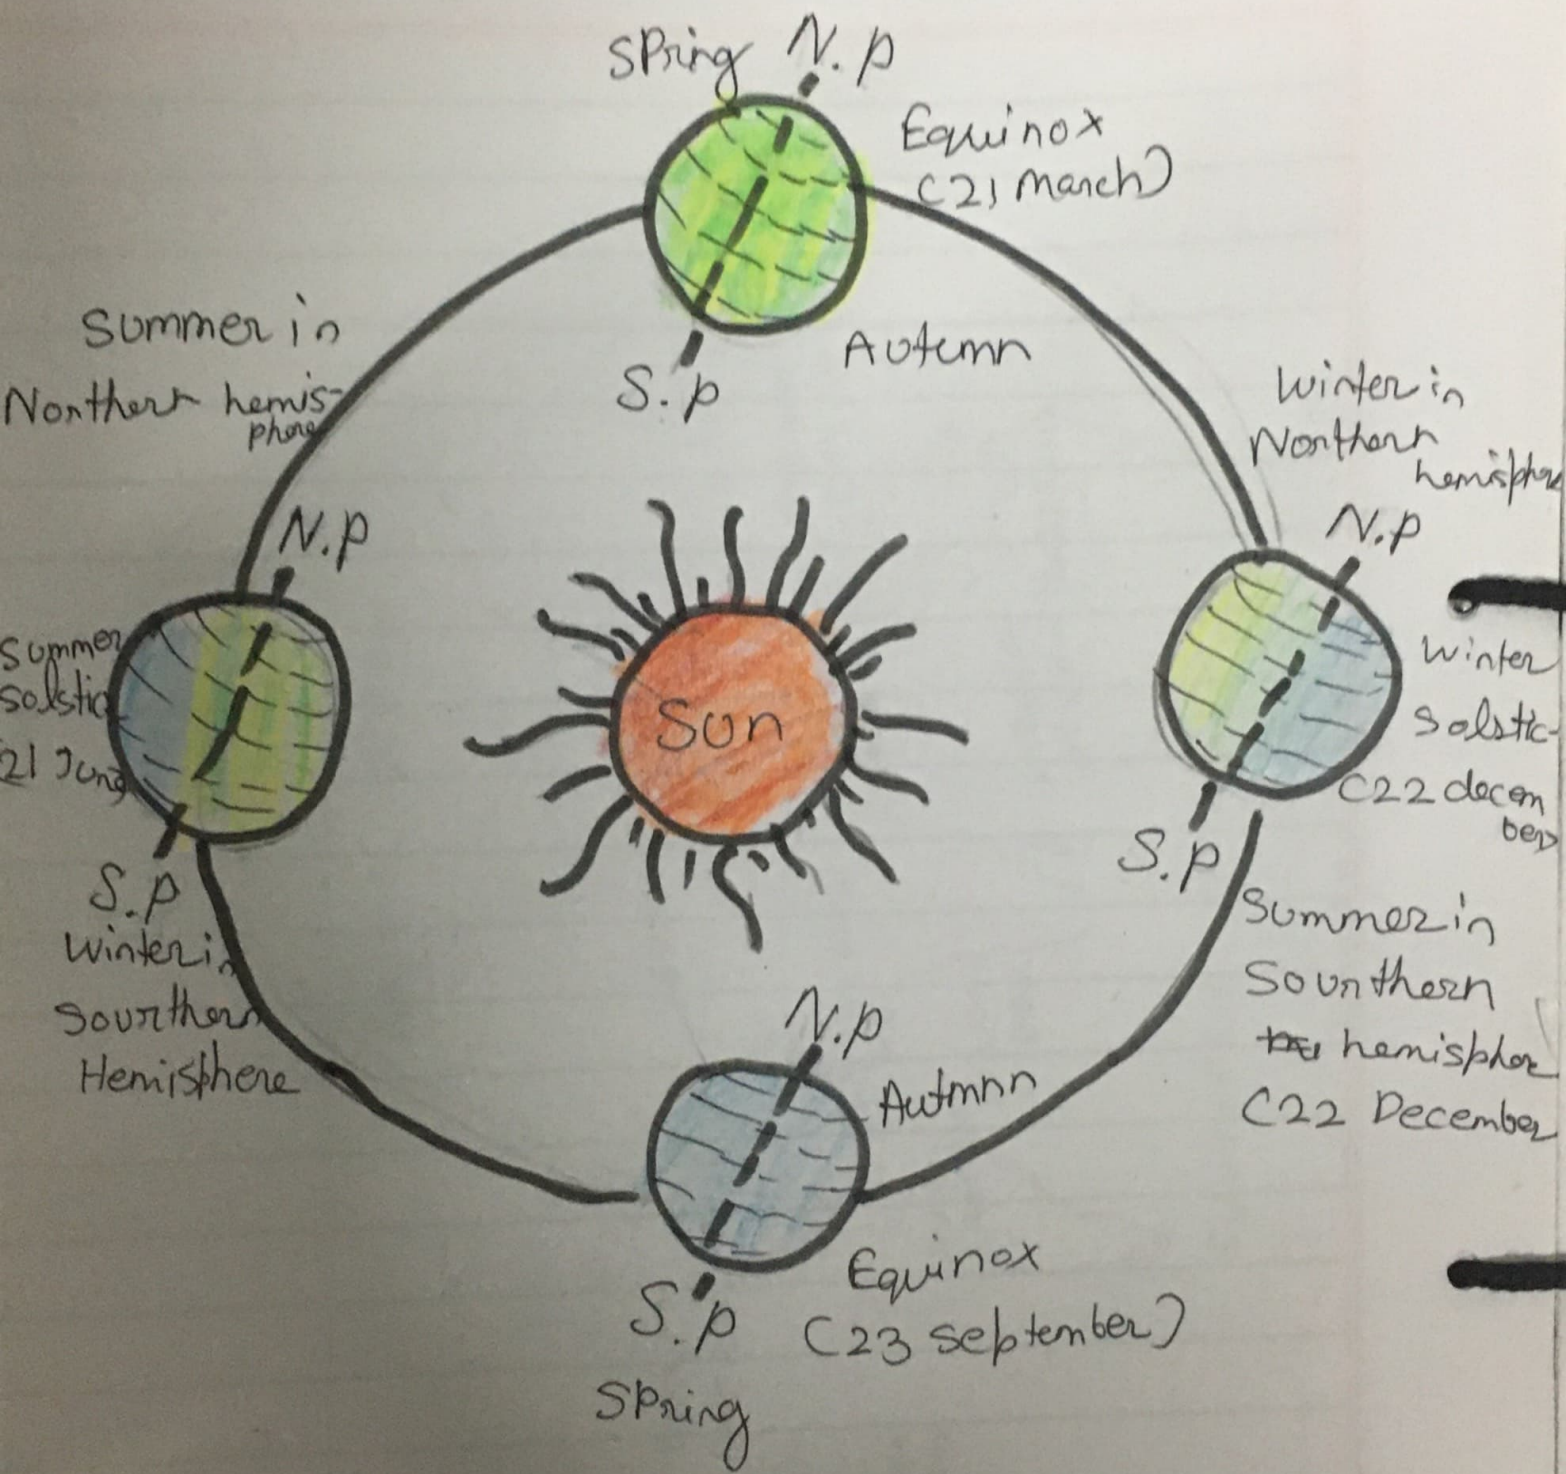 Spring
N.p
Equinox
(21 march)
Autemn
S.p
Summer in
Northern hemis-
phere
N.p
Summer
solstic
21 June
S.p
Winter in
Sourthern
Hemisphere
Sun
Winter in
Northern
hemisphere
N.p
Winter
Solstic-
(22 decem
ber)
S.p
Summer in
Sounthern
hemispher
(22 December
N.p
Autmnn
Equinox
(23 september)
S.p
Spring